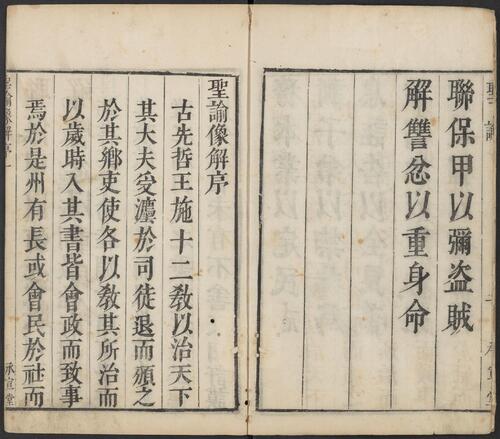 聖諭
聯保甲以彌盜賊
解讐忿以重身命
承宣堂
聖諭像解序
古先哲王施十二敎以治天下
其大夫受灋於司徒退而頒之
於其鄉吏使各以敎其所治而
以歲時入其書皆會政而致事
焉於是州有長或會民於社而
聖諭像解序
一
承宣堂